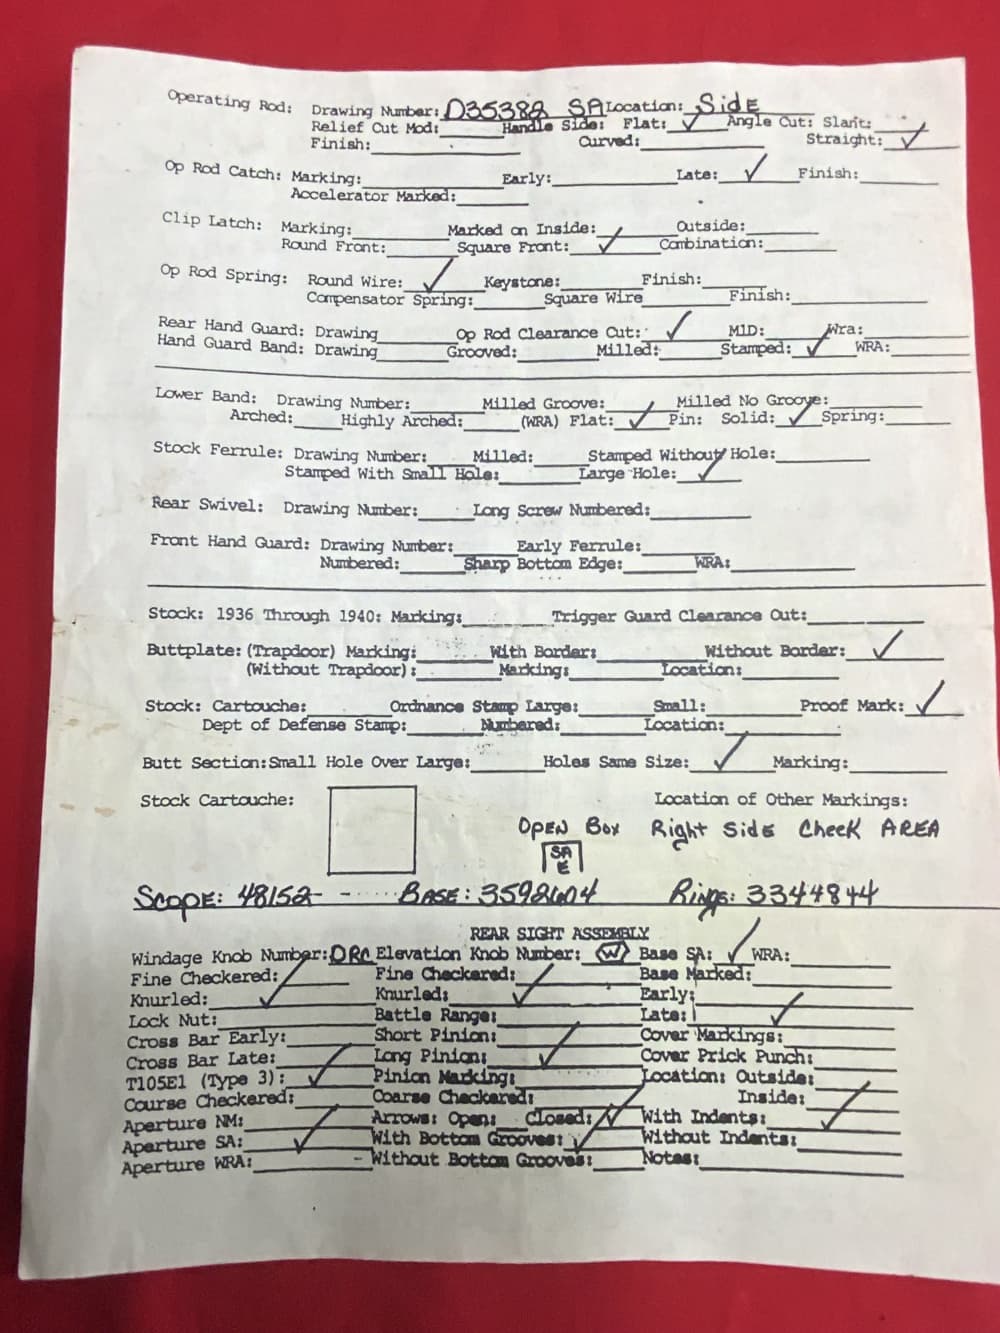 Operating Rod: Drawing Number: D35382 SA Location: Side
Relief Cut Mod: Handle Side: Flat: ✓ Angle Cut: Slant:
Finish: Curved: Straight: ✓
Op Rod Catch: Marking: Early: Late: ✓ Finish:
Accelerator Marked:
Clip Latch: Marking: Marked on Inside: Outside:
Round Front: Square Front: ✓ Combination:
Op Rod Spring: Round Wire: ✓ Keystone: Finish:
Compensator Spring: Square Wire Finish:
Rear Hand Guard: Drawing Op Rod Clearance Cut: ✓ M1D: Wra:
Hand Guard Band: Drawing Grooved: Milled: Stamped: ✓ WRA:
Lower Band: Drawing Number: Milled Groove: Milled No Groove:
Arched: Highly Arched: (WRA) Flat: ✓ Pin: Solid: ✓ Spring:
Stock Ferrule: Drawing Number: Milled: Stamped Without Hole:
Stamped With Small Hole: Large Hole: ✓
Rear Swivel: Drawing Number: Long Screw Numbered:
Front Hand Guard: Drawing Number: Early Ferrule:
Numbered: Sharp Bottom Edge: WRA:
Stock: 1936 Through 1940: Marking: Trigger Guard Clearance Cut:
Buttplate: (Trapdoor) Marking: With Border: Without Border: ✓
(Without Trapdoor): Marking: Location:
Stock: Cartouche: Ordnance Stamp Large: Small: Proof Mark: ✓
Dept of Defense Stamp: Numbered: Location:
Butt Section: Small Hole Over Large: Holes Same Size: ✓ Marking:
Stock Cartouche: Location of Other Markings:
OPEN Box Right Side Cheek AREA
SA
E
Scope: 48152 BASE: 3592604 Rings: 3344844
REAR SIGHT ASSEMBLY
Windage Knob Number: DRC Elevation Knob Number: W Base SA: ✓ WRA:
Fine Checkered: Fine Checkered: Base Marked:
Knurled: ✓ Knurled: ✓ Early:
Lock Nut: Battle Range: Late: ✓
Cross Bar Early: Short Pinion: Cover Markings:
Cross Bar Late: Long Pinion: ✓ Cover Prick Punch:
T105E1 (Type 3): ✓ Pinion Marking: Location: Outside:
Course Checkered: Coarse Checkered: Inside:
Aperture NM: Arrows: Open: Closed: ✓ With Indents: ✓
Aperture SA: ✓ With Bottom Grooves: ✓ Without Indents:
Aperture WRA: Without Bottom Grooves: Notes: